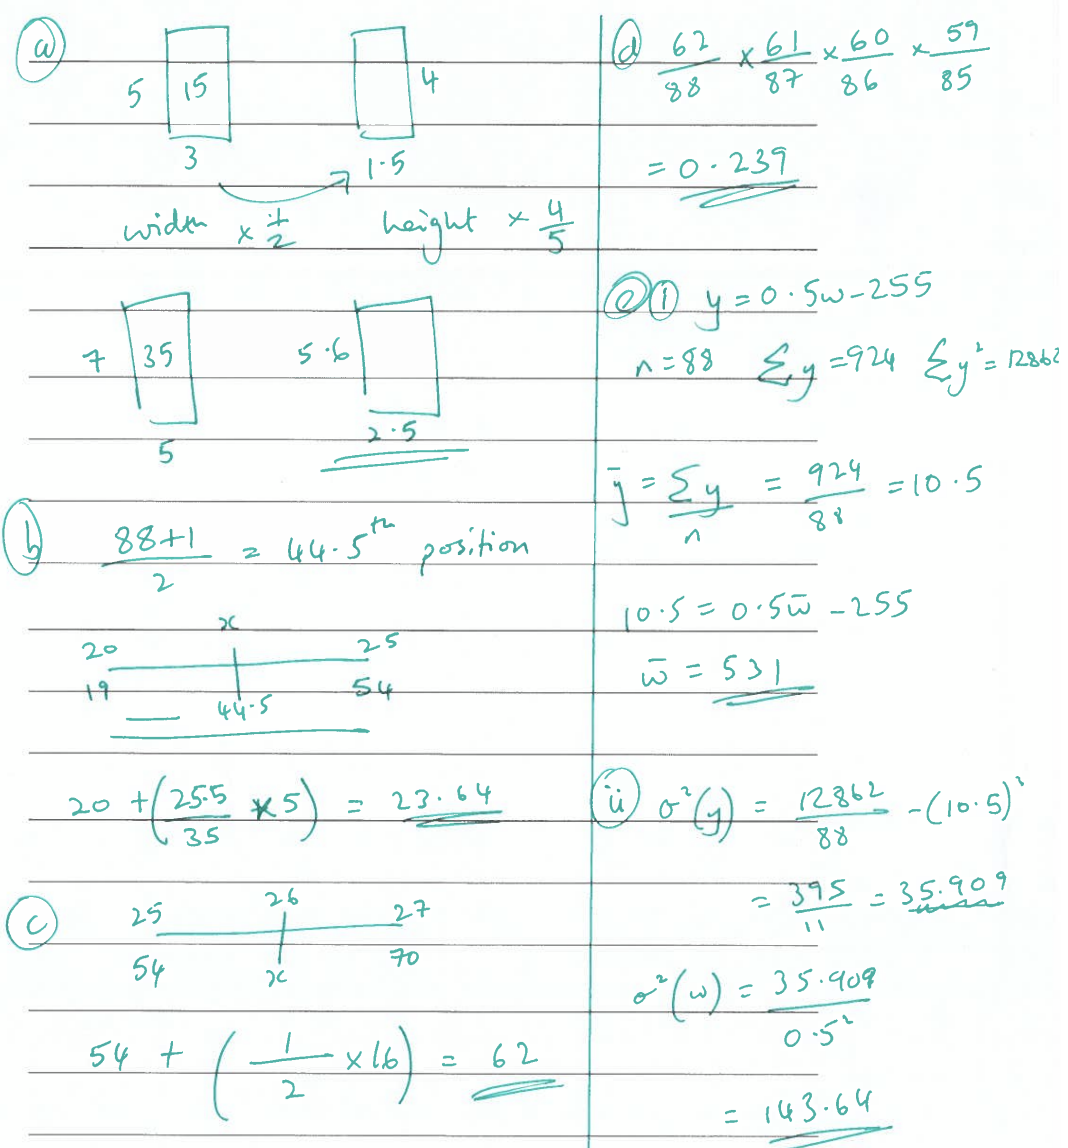 a
5 15 4
3 1.5
width × 1/2 height × 4/5
7 35 5.6
5 2.5
b (88+1)/2 = 44.5th position
x
20 25
19 44.5 54
20 + (25.5/35 × 5) = 23.64
c 25 26 27
54 x 70
54 + (1/2 × 16) = 62
d 62/88 × 61/87 × 60/86 × 59/85
= 0.239
e i y = 0.5w - 255
n = 88 Σy = 924 Σy² = 12862
ȳ = Σy/n = 924/88 = 10.5
10.5 = 0.5w̄ - 255
w̄ = 531
ii σ²(y) = 12862/88 - (10.5)²
= 395/11 = 35.909
σ²(w) = 35.909/0.5²
= 143.64